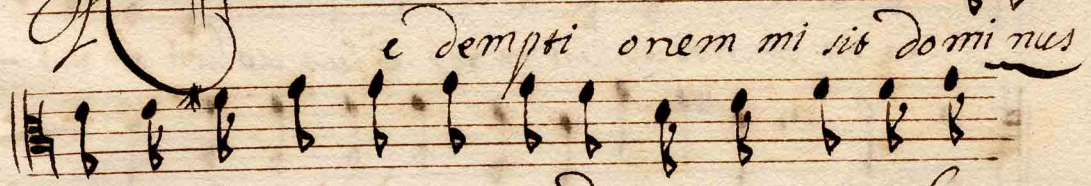 R e dempti onem mi sit domi nus